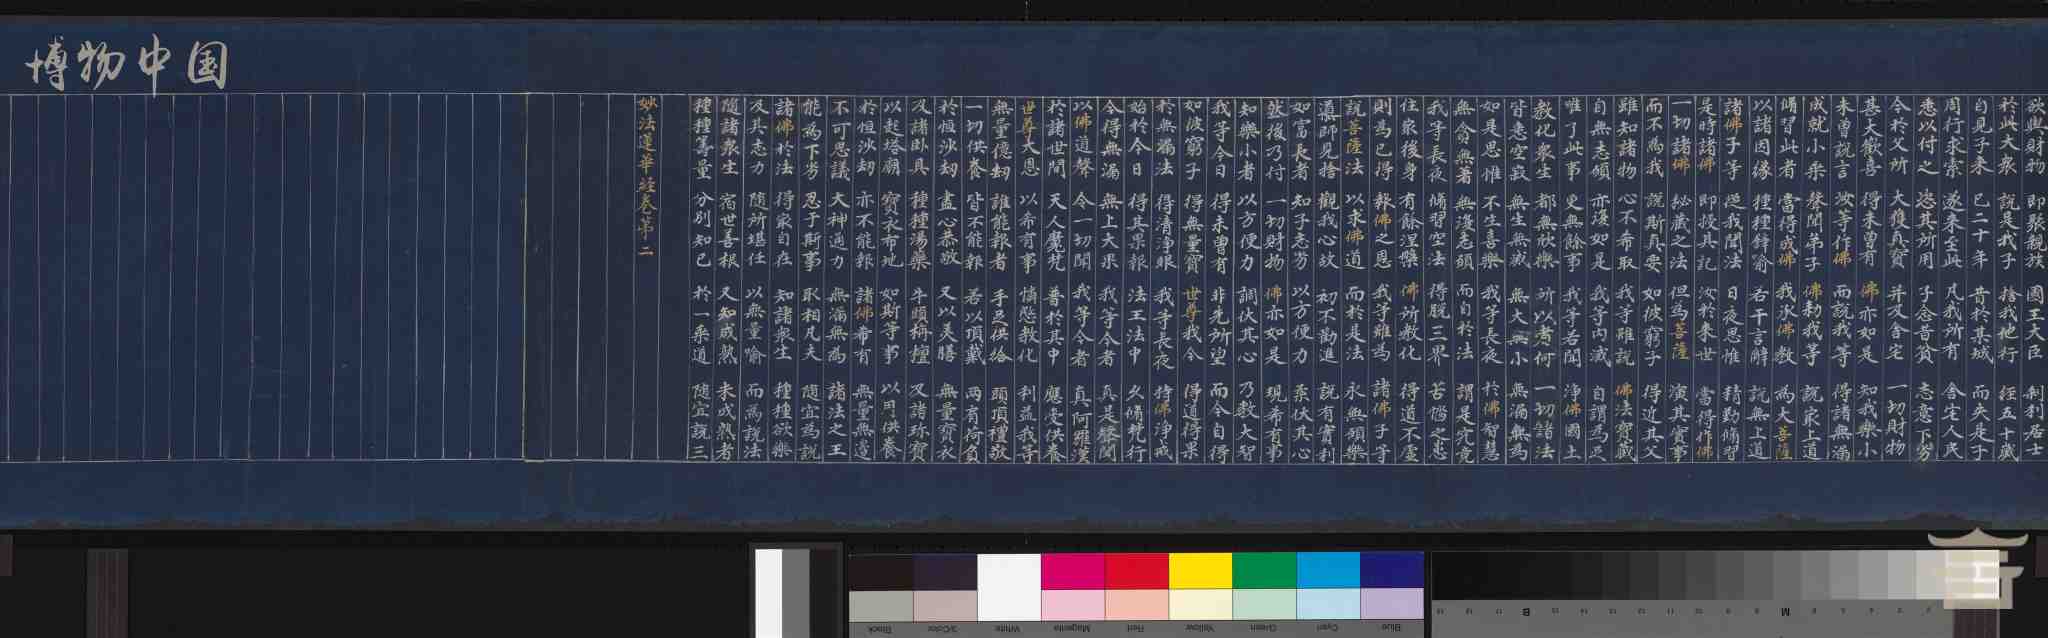 博物中国
欲與財物 即聚親族 國王大臣 刹利居士
於此大衆 說是我子 捨我他行 經五十歲
自見子來 已二十年 昔於某城 而失是子
周行求索 遂來至此 凡我所有 舍宅人民
悉以付之 恣其所用 子念昔貧 志意下劣
今於父所 大獲真寶 并及舍宅 一切財物
甚大歡喜 得未曾有 佛亦如是 知我樂小
未曾說言 汝等作佛 而說我等 得諸無漏
成就小乘 聲聞弟子 佛勑我等 說冣上道
脩習此者 當得成佛 我承佛教 為大菩薩
以諸因緣 種種譬喻 若干言辭 說無上道
諸佛子等 從我聞法 日夜思惟 精勤脩習
是時諸佛 即授其記 汝於来世 當得作佛
一切諸佛 秘藏之法 但為菩薩 演其實事
而不為我 說斯真要 如彼窮子 得近其父
雖知諸物 心不希取 我等雖說 佛法寶藏
自無志願 亦復如是 我等内滅 自謂為足
唯了此事 更無餘事 我等若聞 淨佛國土
教化衆生 都無欣樂 所以者何 一切諸法
皆悉空寂 無生無滅 無大無小 無漏無為
如是思惟 不生喜樂 我等長夜 於佛智慧
無貪無著 無復志願 而自於法 謂是究竟
我等長夜 脩習空法 得脫三界 苦惱之患
住冣後身 有餘涅槃 佛所教化 得道不虛
則為已得 報佛之恩 我等雖為 諸佛子等
說菩薩法 以求佛道 而於是法 永無願樂
導師見捨 觀我心故 初不勸進 說有實利
如富長者 知子志劣 以方便力 柔伏其心
然後乃付 一切財物 佛亦如是 現希有事
知樂小者 以方便力 調伏其心 乃教大智
我等今日 得未曾有 非先所望 而今自得
如彼窮子 得無量寶 世尊我今 得道得果
於無漏法 得清淨眼 我等長夜 持佛淨戒
始於今日 得其果報 法王法中 久脩梵行
今得無漏 無上大果 我等今者 真是聲聞
以佛道聲 令一切聞 我等今者 真阿羅漢
於諸世間 天人魔梵 普於其中 應受供養
世尊大恩 以希有事 憐愍教化 利益我等
無量億劫 誰能報者 手足供給 頭頂禮敬
一切供養 皆不能報 若以頂戴 兩肩荷負
於恒沙劫 盡心恭敬 又以美膳 無量寶衣
及諸卧具 種種湯藥 牛頭栴檀 及諸珍寶
以起塔廟 寶衣布地 如斯等事 以用供養
於恒沙劫 亦不能報 諸佛希有 無量無邊
不可思議 大神通力 無漏無為 諸法之王
能為下劣 忍于斯事 取相凡夫 隨宜為說
諸佛於法 得冣自在 知諸衆生 種種欲樂
及其志力 隨所堪任 以無量喻 而為說法
隨諸衆生 宿世善根 又知成熟 未成熟者
種種籌量 分別知已 於一乘道 隨宜說三
妙法蓮華經卷第二
Black 3/Color White Magenta Red Yellow Green Cyan Blue